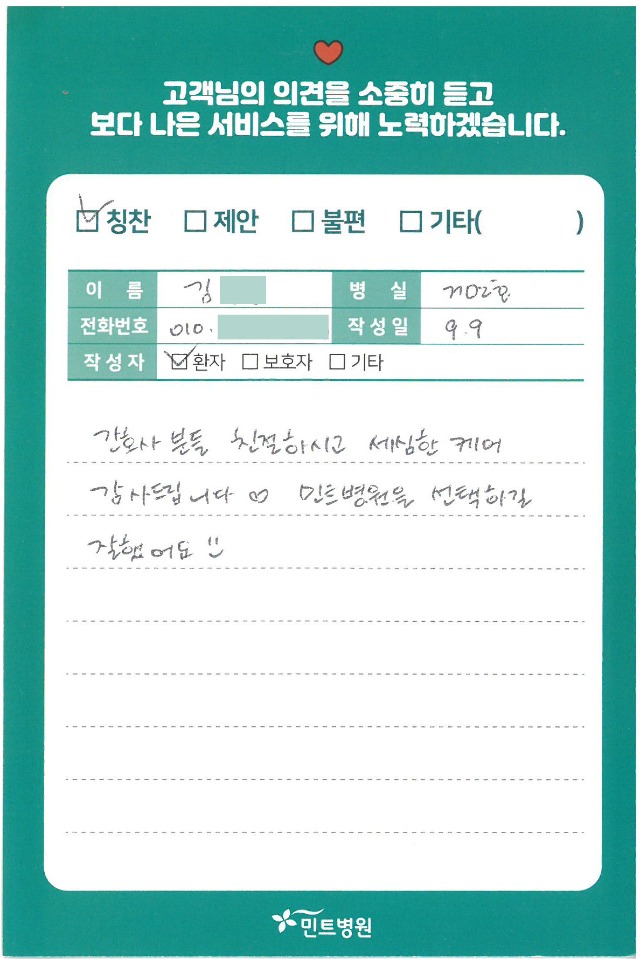 고객님의 의견을 소중히 듣고
보다 나은 서비스를 위해 노력하겠습니다.
칭찬 제안 불편 기타( )
이 름 김 병 실 702호
전화번호 010. 작성일 9.9
작성자 환자 보호자 기타
간호사 분들 친절하시고 세심한 케어
감사드립니다 ♡ 민트병원을 선택하길
잘했어요 :)
민트병원